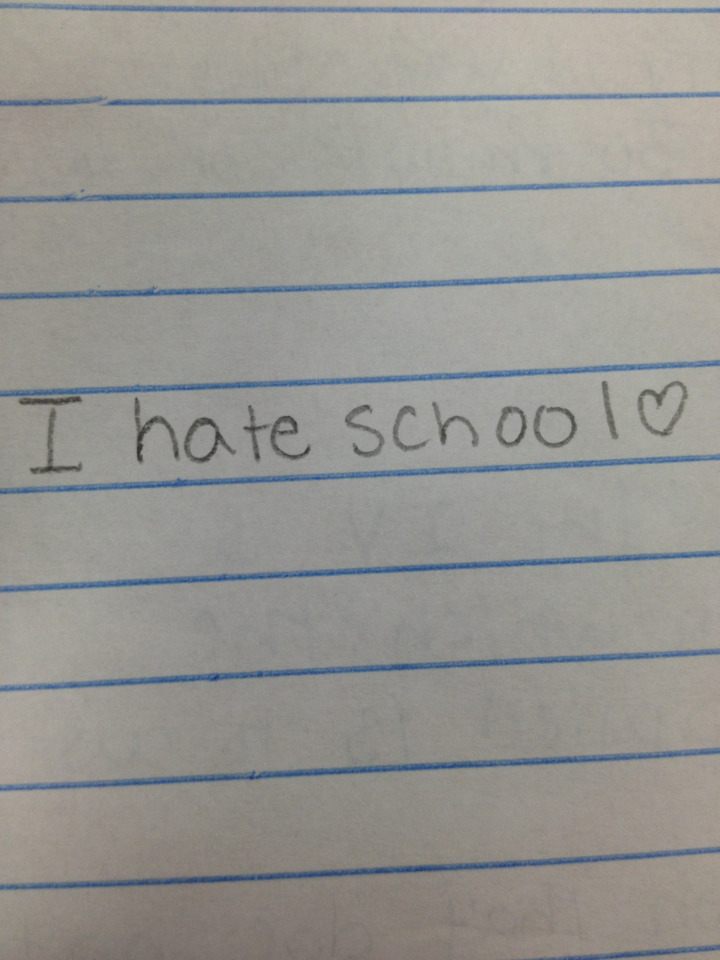 I hate school♡